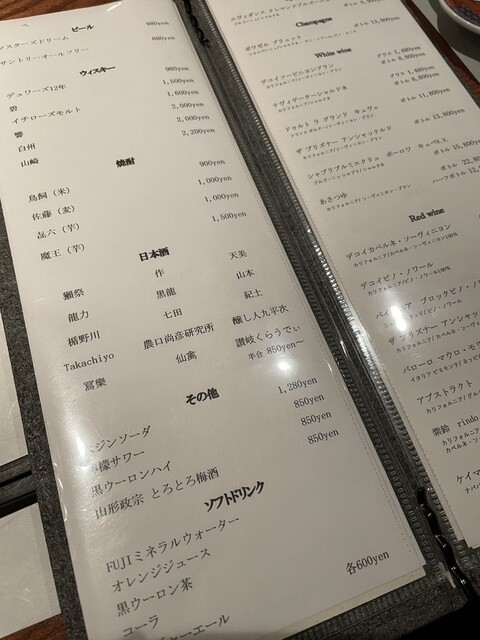 ビール
スターズドリーム 980yen
サントリーオールフリー 680yen
ウィスキー
デュワーズ12年 980yen
碧 1,500yen
イチローズモルト 1,600yen
響 2,000yen
白州 2,000yen
山崎 2,200yen
焼酎
鳥飼（米） 900yen
佐藤（麦） 1,000yen
㐂六（芋） 1,000yen
魔王（芋） 1,500yen
日本酒
獺祭 作 天美
龍力 黒龍 山本
楯野川 七田 紀土
Takachiyo 農口尚彦研究所 醸し人九平次
冩樂 仙禽 讃岐くらうでぃ
半合 850yen～
その他
ジンソーダ 1,280yen
檬サワー 850yen
黒ウーロンハイ 850yen
山形政宗 とろとろ梅酒 850yen
ソフトドリンク
FUJIミネラルウォーター
オレンジジュース
黒ウーロン茶
コーラ 各600yen
ジャーエール
Champagne
ボトル 13,800yen
White wine
デコイソーゼニヨンブラン グラス 1,480yen
ボトル 8,800yen
ナヴィゲーターシャルドネ グラス 1,480yen
カリフォルニア/シャルドネ ボトル 8,800yen
ドゥルト ラ グランド キュヴェ ボトル 11,800yen
ザ プリズナー アンシャックルド ボトル 13,800yen
シャブリプルミエクリュ ボーロワ
あさつゆ
カリフォルニア/ソーヴィニヨン・ブラン
Red wine
デコイカベルネ・ソーヴィニヨン
カリフォルニア/カベルネ・ソーヴィニヨン100%
デコイピノ・ノワール
カリフォルニア/ピノ・ノワール100%
ブロックピノ・ノワ
ザ プリズナー アンシャック
バローロ マウロ・モリ
アブストラクト
カリフォルニア/グル
紫鈴 rindo
カリフォルニア
カベルネ・ソ
ケイマ
ナパ